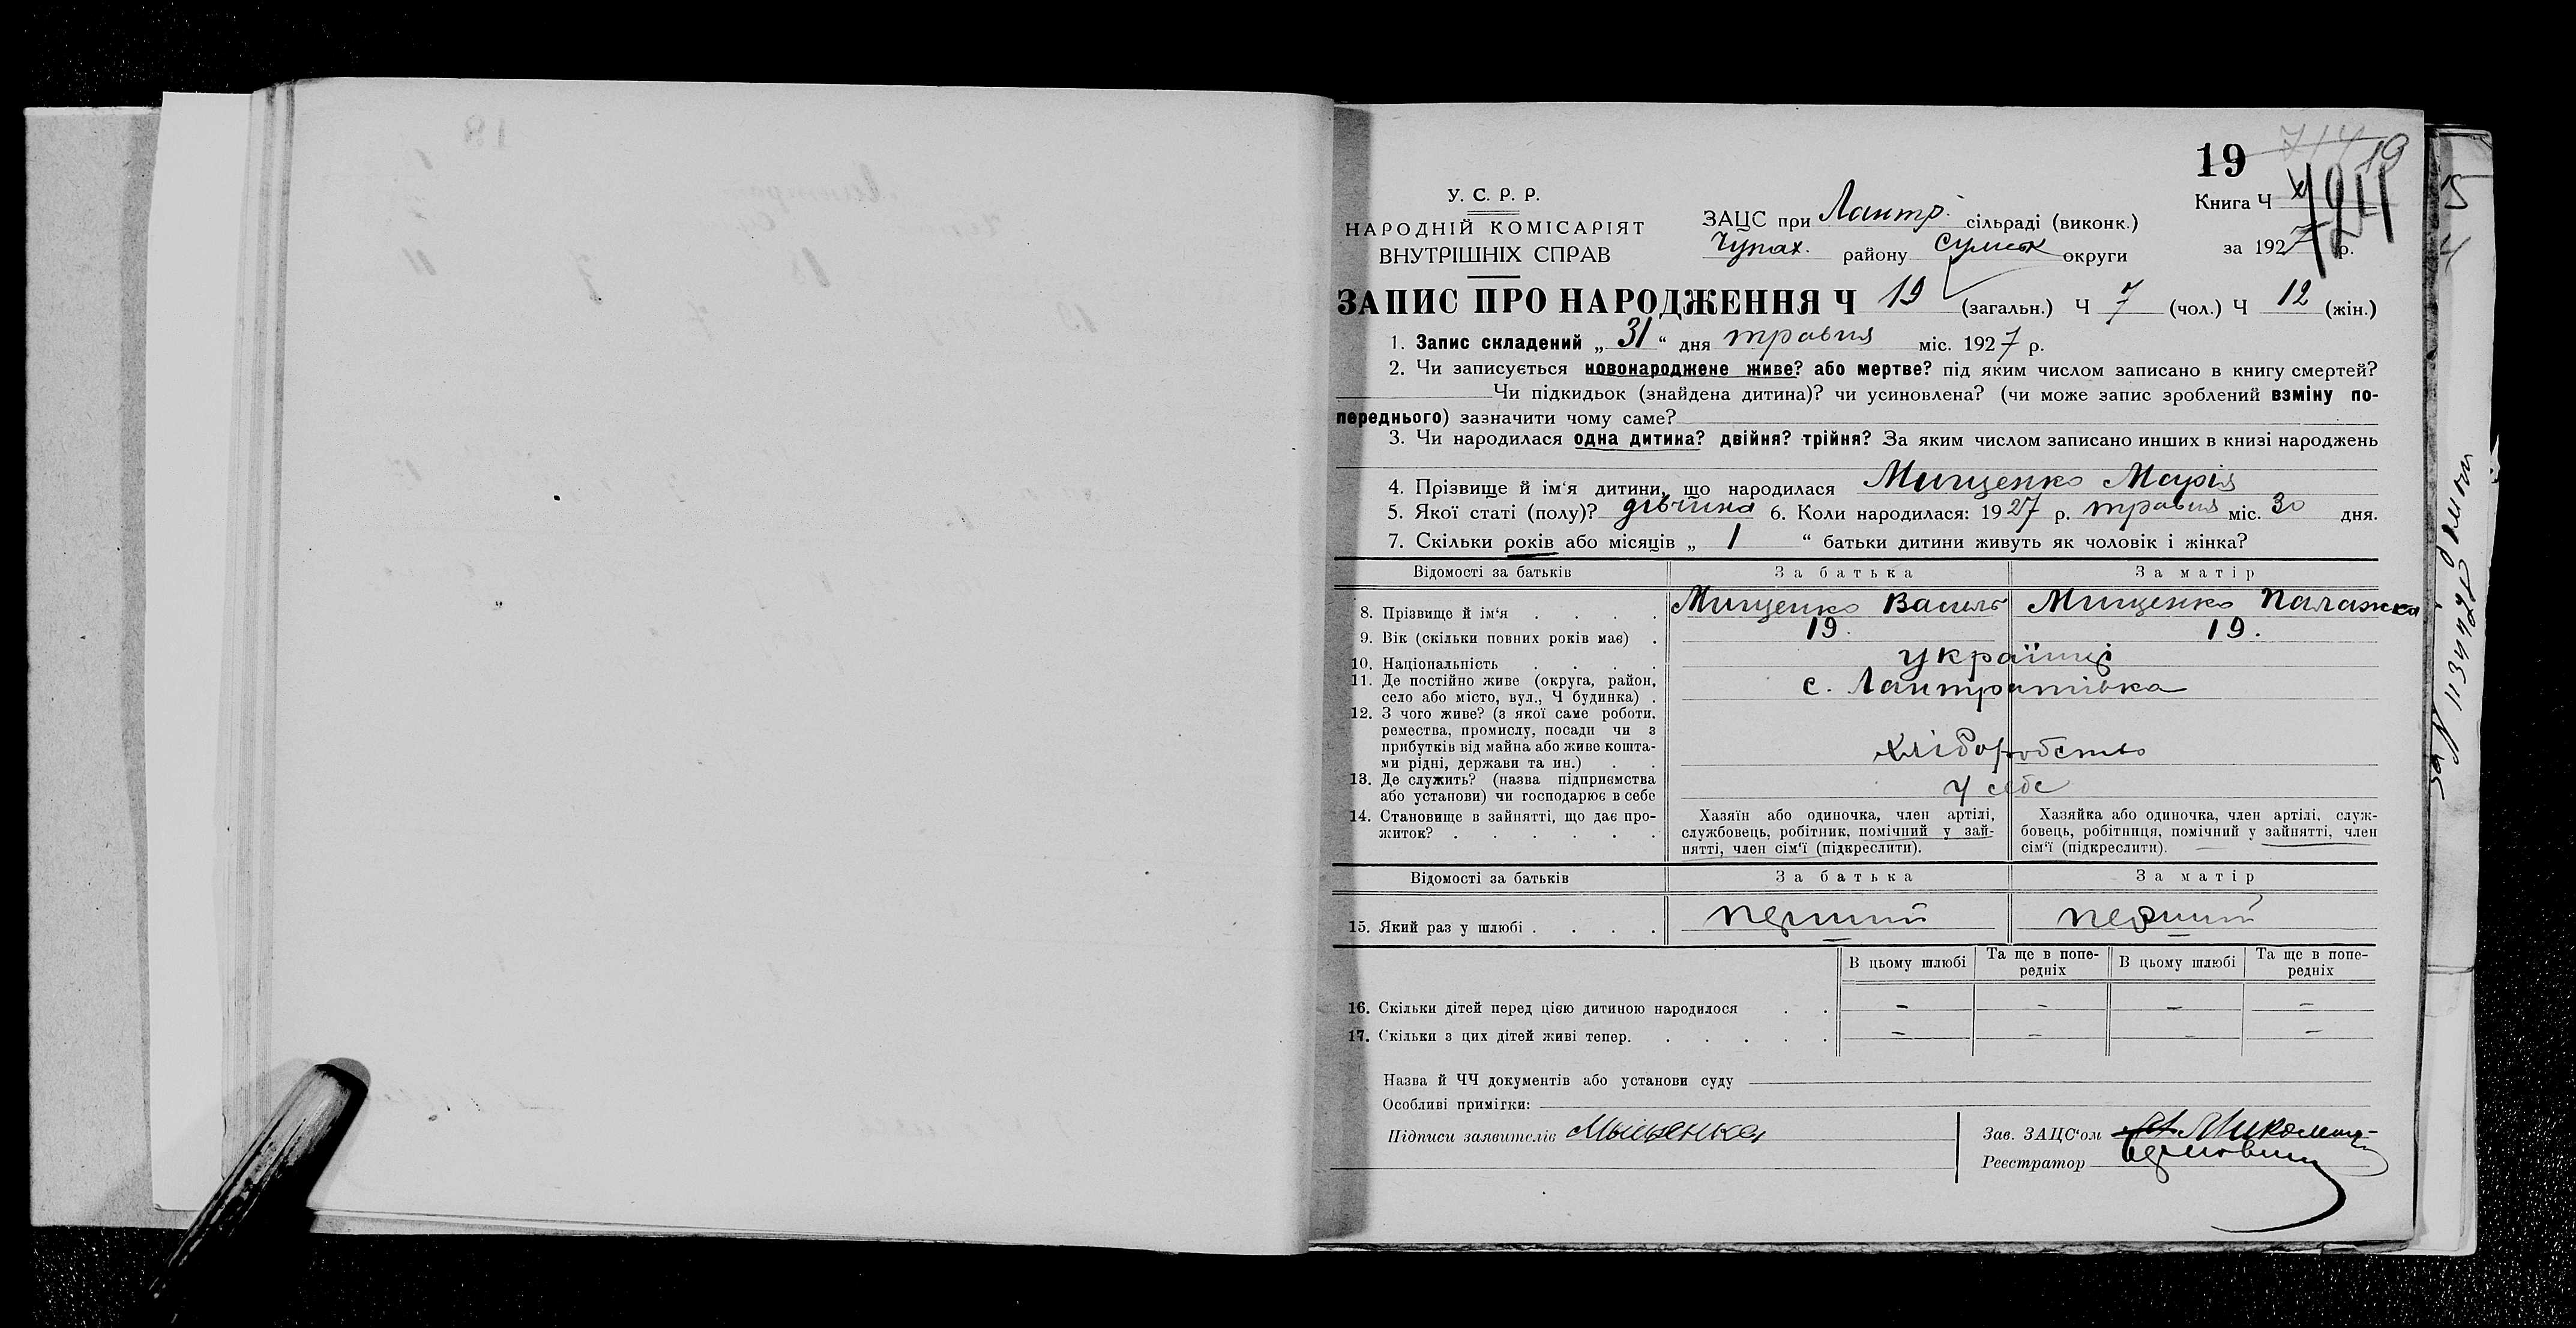 19
У. С. Р. Р.
НАРОДНІЙ КОМІСАРІЯТ
ВНУТРІШНІХ СПРАВ
ЗАЦС при Лантр. сільраді (виконк.)
Чупах. району Сумськ округи
Книга Ч
за 1927 р.
ЗАПИС ПРО НАРОДЖЕННЯ Ч 19 (загальн.) Ч 7 (чол.) Ч 12 (жін.)
1. Запис складений „ 31 “ дня травня міс. 1927 р.
2. Чи записується новонароджене живе? або мертве? під яким числом записано в книгу смертей?
Чи підкидьок (знайдена дитина)? чи усиновлена? (чи може запис зроблений взміну по-
переднього) зазначити чому саме?
3. Чи народилася одна дитина? двійня? трійня? За яким числом записано инших в книзі народжень
4. Прізвище й ім‘я дитини, що народилася Мищенко Марія
5. Якої статі (полу)? дівчина 6. Коли народилася: 1927 р. травня міс. 30 дня.
7. Скільки років або місяців „ 1 “ батьки дитини живуть як чоловік і жінка?
Відомості за батьків За батька За матір
8. Прізвище й ім‘я . . . . Мищенко Василь Мищенко Палажка
9. Вік (скільки повних років має) . 19. 19.
10. Національність . . . . українці
11. Де постійно живе (округа, район,
село або місто, вул., Ч будинка) . с. Лантратівка
12. З чого живе? (з якої саме роботи,
ремества, промислу, посади чи з
прибутків від майна або живе кошта-
ми рідні, держави та ин.) . . хліборобство
13. Де служить? (назва підприємства
або установи) чи господарює в себе у себе
14. Становище в зайнятті, що дає про-
житок? . . . . . .
Хазяїн або одиночка, член артілі,
службовець, робітник, помічний у зай-
нятті, член сім‘ї (підкреслити).
Хазяйка або одиночка, член артілі, служ-
бовець, робітниця, помічний у зайнятті, член
сім‘ї (підкреслити).
Відомості за батьків За батька За матір
15. Який раз у шлюбі . . . . перший перший
В цьому шлюбі Та ще в попе-
редніх В цьому шлюбі Та ще в попе-
редніх
16. Скільки дітей перед цією дитиною народилося . . – – – –
17. Скільки з цих дітей живі тепер. . . . . . – – – –
Назва й ЧЧ документів або установи суду
Особливі примітки:
Підписи заявителів Мыщенко
Зав. ЗАЦС‘ом
Реєстратор